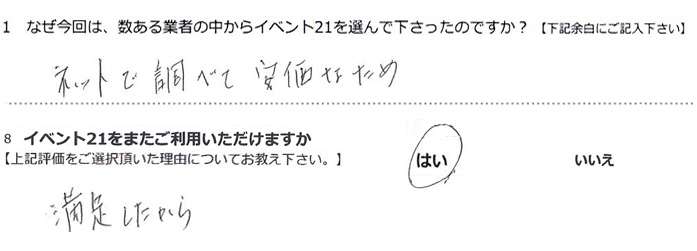 1 なぜ今回は、数ある業者の中からイベント21を選んで下さったのですか？【下記余白にご記入下さい】
ネットで調べて安価なため
8 イベント21をまたご利用いただけますか
【上記評価をご選択頂いた理由についてお教え下さい。】 はい いいえ
満足したから